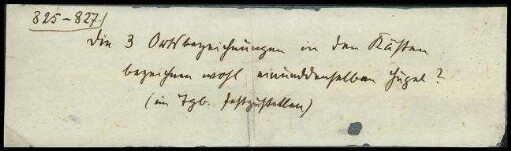 825-827)
Die 3 Ortsbezeichnungen in den Kästen
bezeichnen wohl einunddenselben Hügel?
(im Tgb. festzustellen)